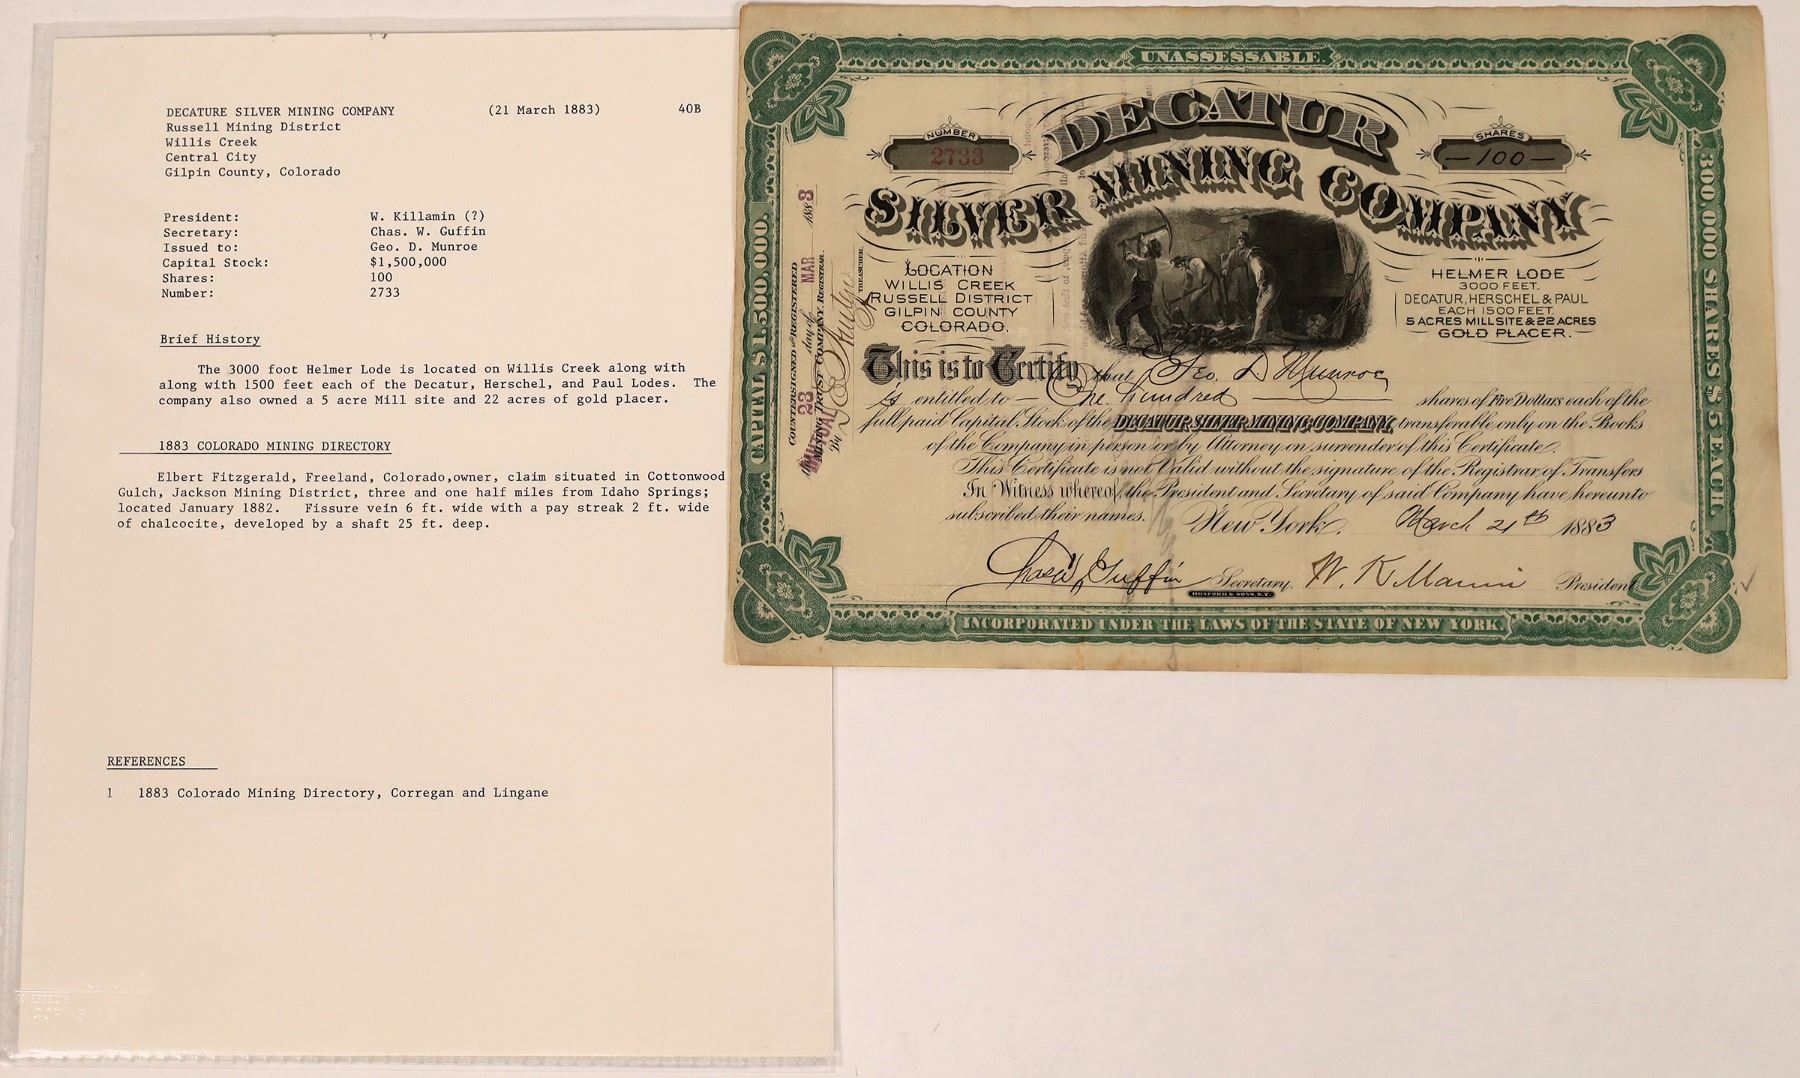 DECATURE SILVER MINING COMPANY (21 March 1883) 40B
Russell Mining District
Willis Creek
Central City
Gilpin County, Colorado
President: W. Killamin (?)
Secretary: Chas. W. Guffin
Issued to: Geo. D. Munroe
Capital Stock: $1,500,000
Shares: 100
Number: 2733
Brief History
The 3000 foot Helmer Lode is located on Willis Creek along with
along with 1500 feet each of the Decatur, Herschel, and Paul Lodes. The
company also owned a 5 acre Mill site and 22 acres of gold placer.
1883 COLORADO MINING DIRECTORY
Elbert Fitzgerald, Freeland, Colorado,owner, claim situated in Cottonwood
Gulch, Jackson Mining District, three and one half miles from Idaho Springs;
located January 1882. Fissure vein 6 ft. wide with a pay streak 2 ft. wide
of chalcocite, developed by a shaft 25 ft. deep.
REFERENCES
1 1883 Colorado Mining Directory, Corregan and Lingane
UNASSESSABLE.
DECATUR
SILVER MINING COMPANY
NUMBER
2733
SHARES
—100—
CAPITAL $1,500,000.
300 000 SHARES $5 EACH.
LOCATION
WILLIS CREEK
RUSSELL DISTRICT
GILPIN COUNTY
COLORADO.
HELMER LODE
3000 FEET.
DECATUR, HERSCHEL & PAUL
EACH 1500 FEET.
5 ACRES MILL SITE & 22 ACRES
GOLD PLACER.
COUNTERSIGNED and REGISTERED
this 23 day of MAR 1883
MUTUAL
MINING TRUST COMPANY, REGISTRAR.
By
TREASURER.
This is to Certify that Geo. D Munroe
is entitled to — One hundred — shares of Five Dollars each of the
full paid Capital Stock of the DECATUR SILVER MINING COMPANY, transferable only on the Books
of the Company in person or by Attorney on surrender of this Certificate.
This Certificate is not Valid without the signature of the Registrar of Transfers
In Witness whereof, the President and Secretary of said Company have hereunto
subscribed their names. New York, March 21th 1883
Chas W. Guffin Secretary. President
HOSFORD & SONS, N.Y.
INCORPORATED UNDER THE LAWS OF THE STATE OF NEW YORK.